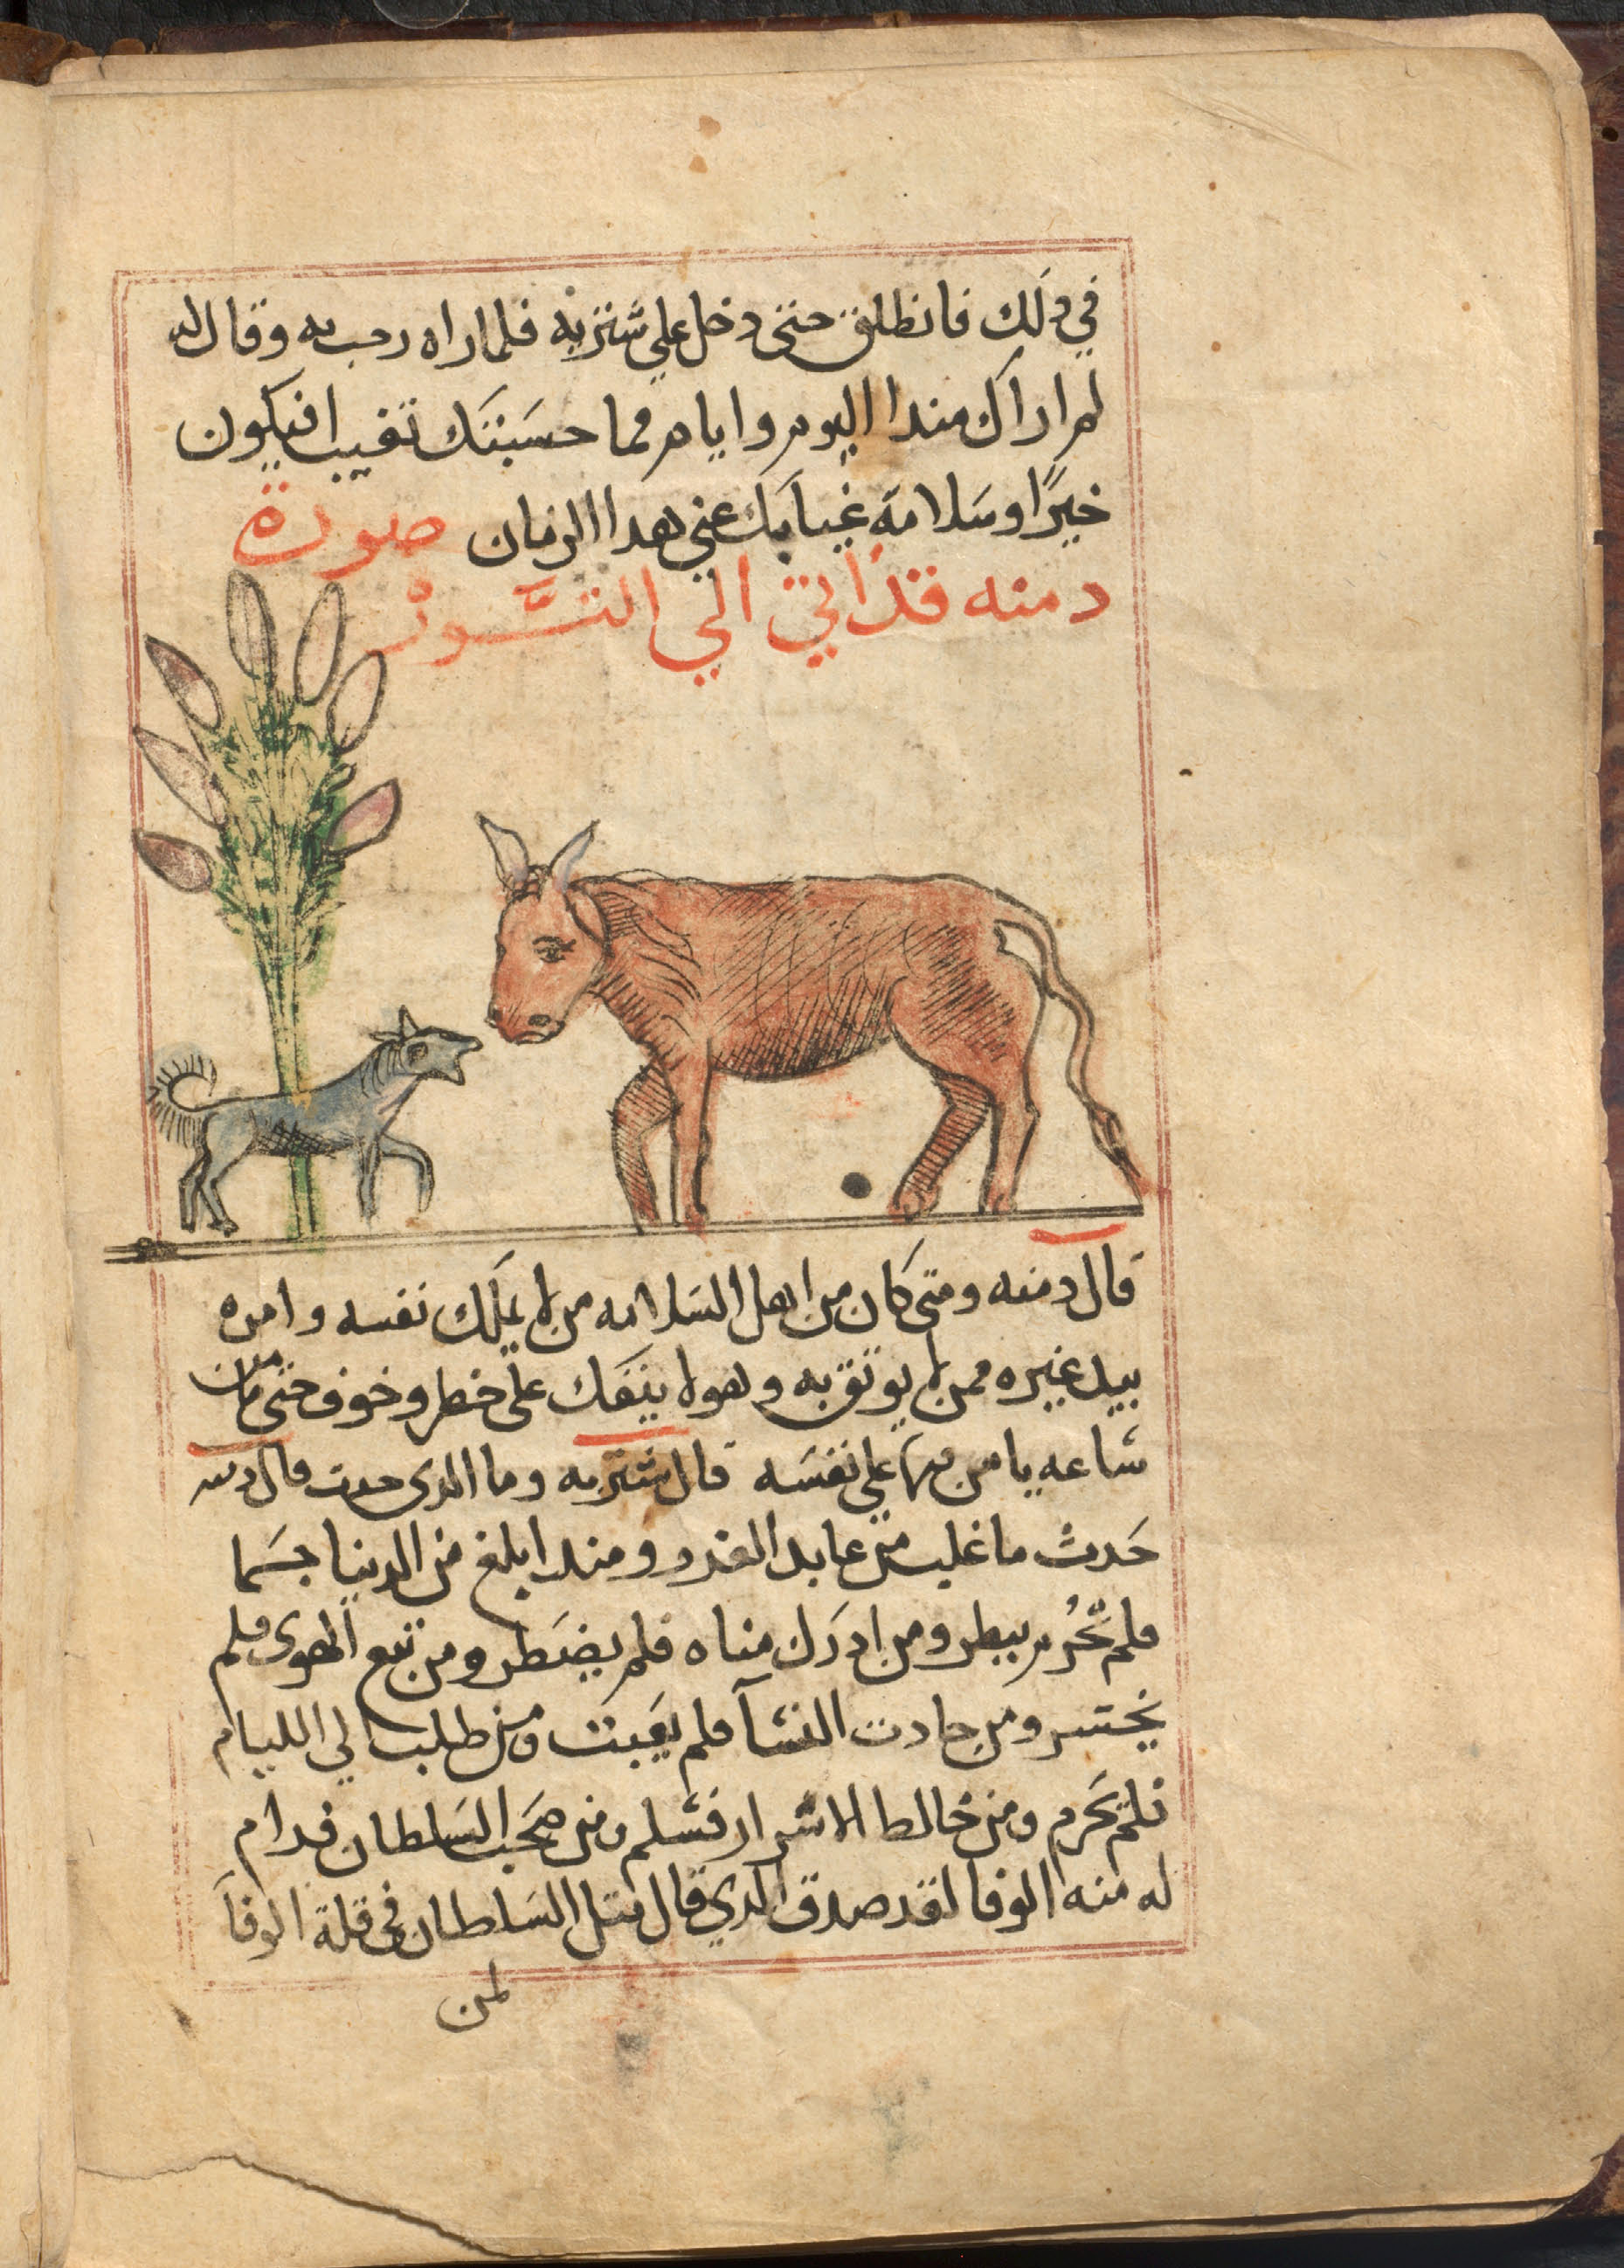 في دلك فانطلق حتى دخل علي شتربه فلما راه رحب به وقال له
لم اراك مندا اليوم وايام فما حسبتك تغيب افيكون
خيرًا وسلامة غيابك عني هدا الزمان صورة
دمنه قد اتي الي الثور
قال دمنه ومتى كان من اهل السلامه من لا يملك نفسه وامره
بيد غيره ممن لا يوثق به وهو لا ينفك على خطر وخوف حتى ما من
ساعه يامن فيها علي نفسه قال شتربه وما الدى حدث قال دمنه
حدث ما غلب من عابد القدر ومندا بلغ من الدنيا جسما
فلم يبطر ومن ادرك مناه فلم ومن تبع الهوى فلم
يخسر ومن حادث النسآ فلم ومن طلب الي الليام
فلم يحرم ومن خالط الاشرار فسلم ومن صحب السلطان فدام
له منه الوفا لقد صدق الدي قال مثل السلطان في قلة الوفآ
لمن